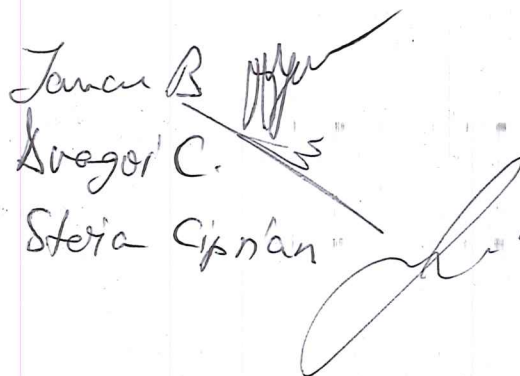 Iancu B
Dragoi C.
Steria Ciprian